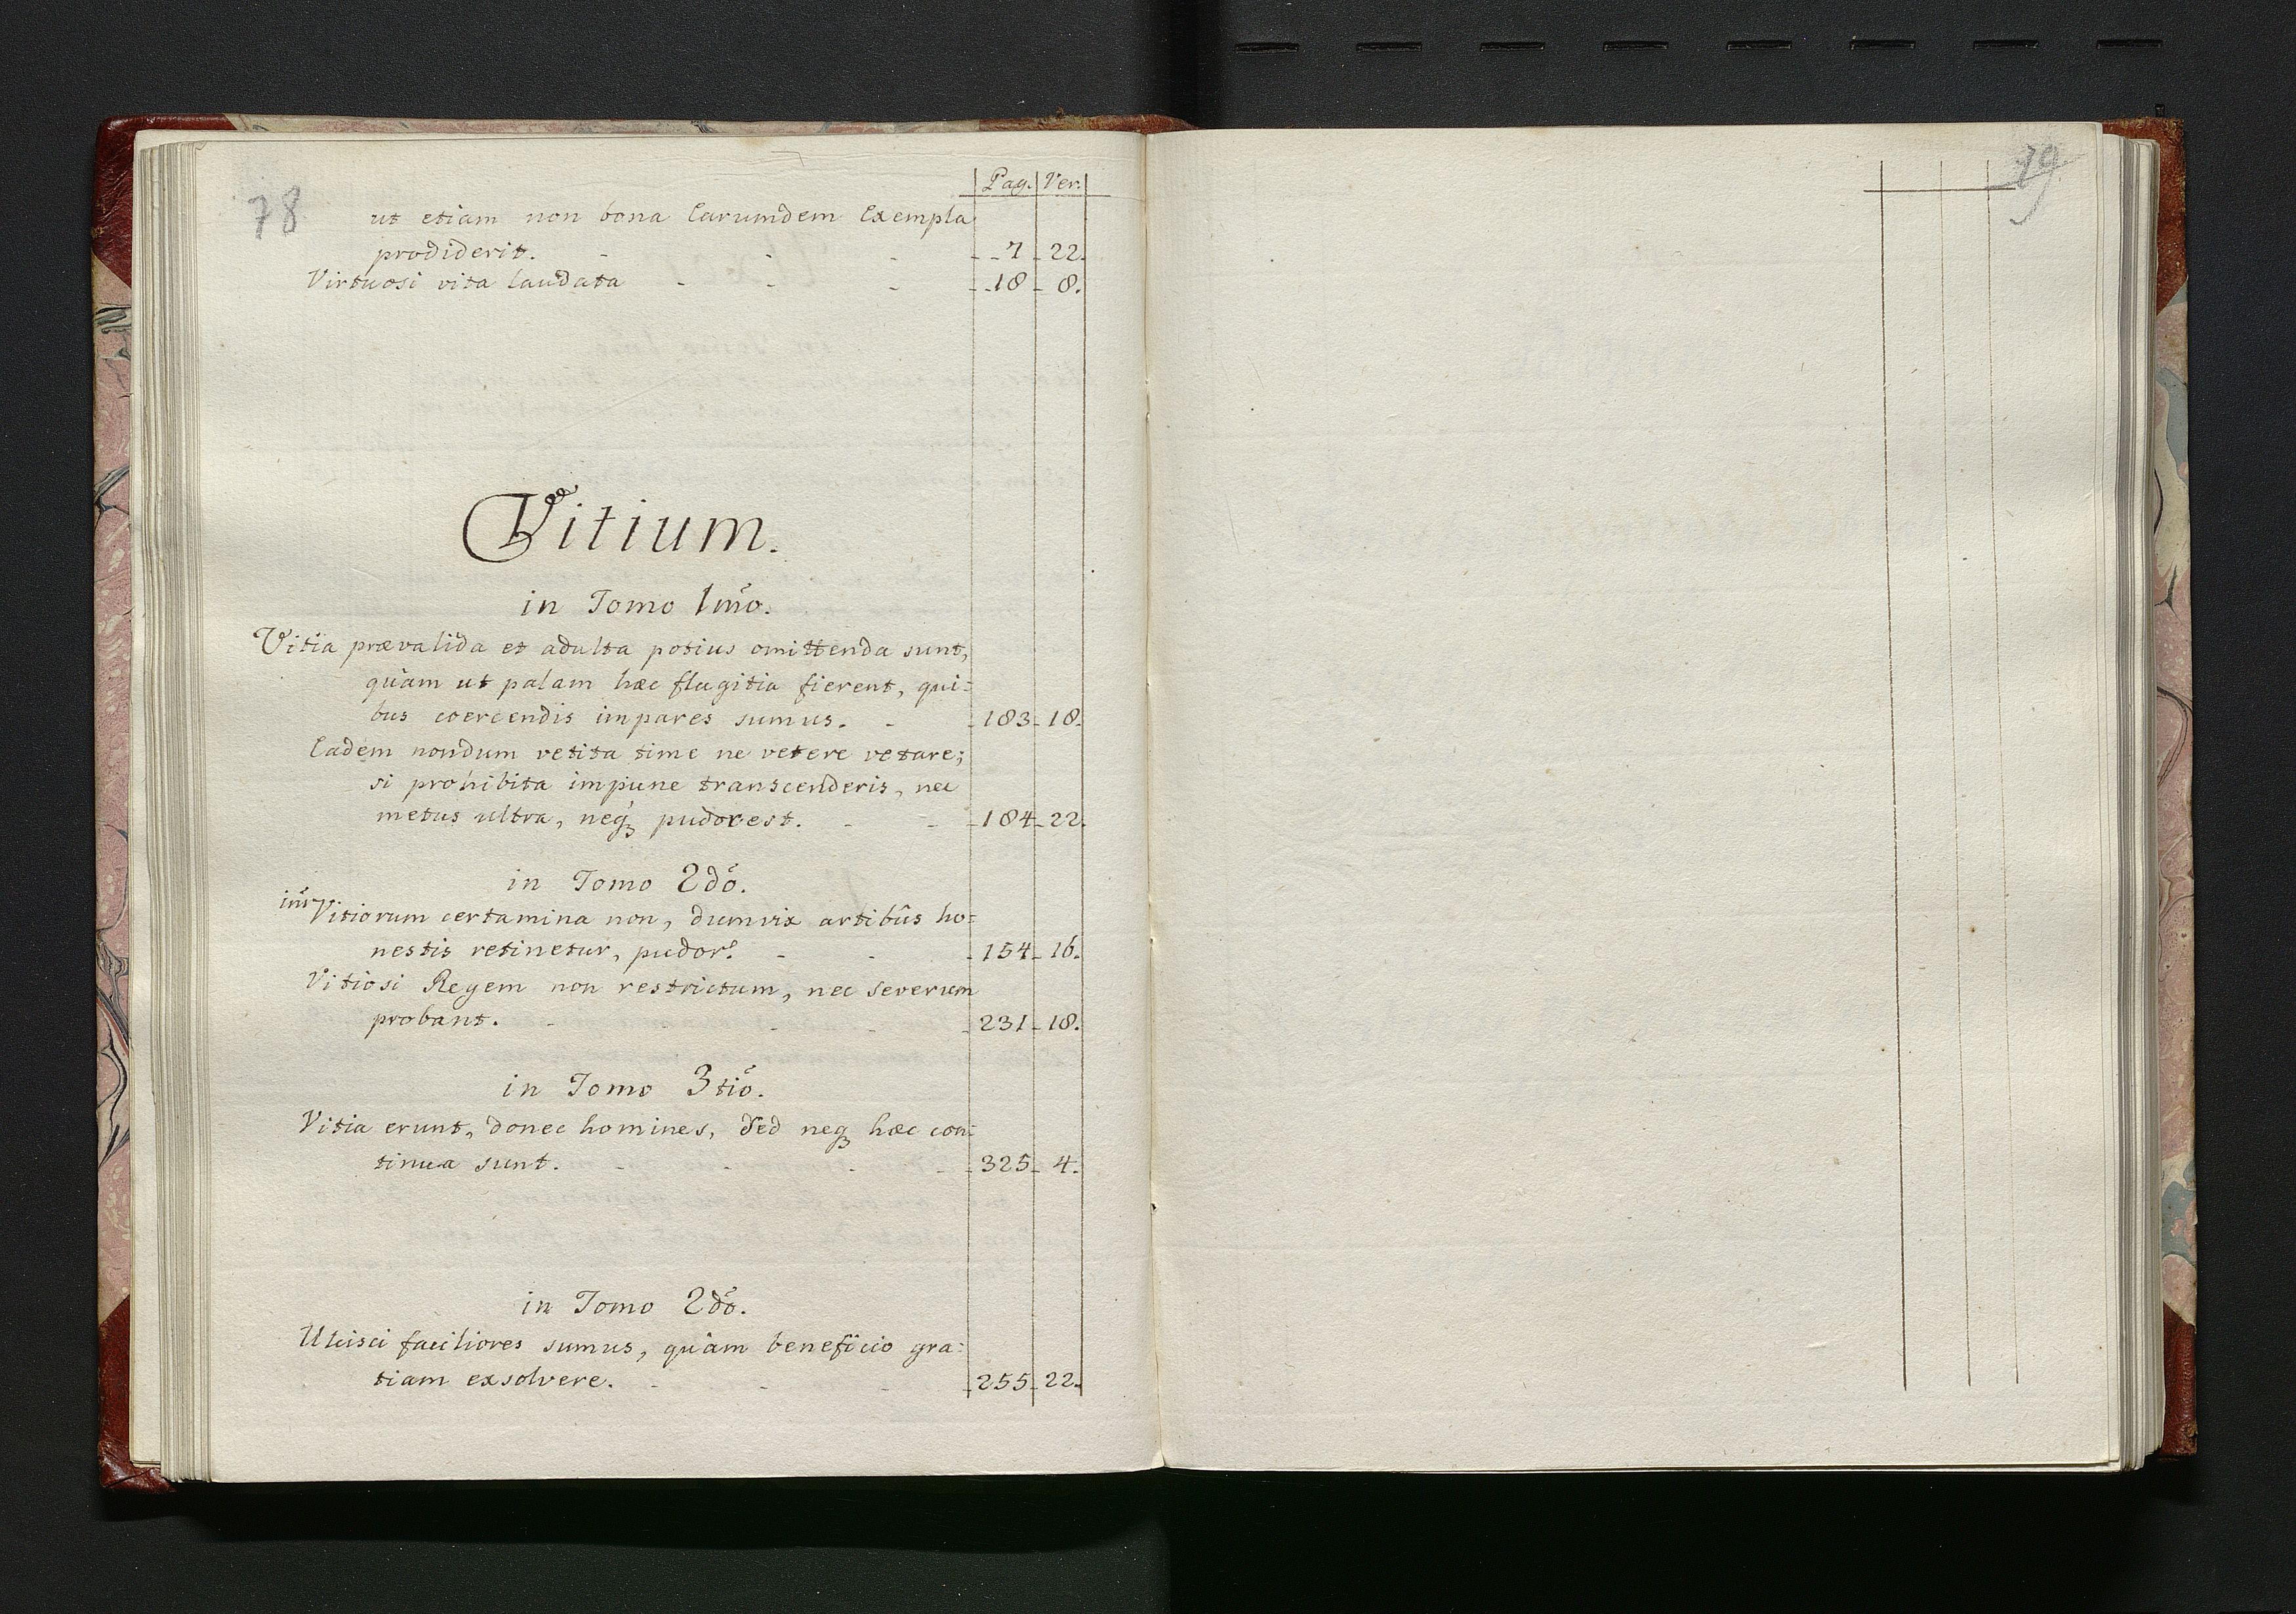 78
Pag. Ver.
ut etiam non bona Earumdem Exempla
prodiderit. - - - 7 - 22.
Virtuosi vita laudata - - - 18 - 8.
Vitium.
in Tomo 1mõ.
Vitia prævalida et adulta potius omittenda sunt,
quàm ut palam hæc flagitia fierent, qui=
bus coercendis impares sumus. - - 183 - 18.
Eadem nondum vetita time ne vetere vetare;
si prohibita impune transcenderis, nec
metus ultra, neq₃ pudor est. - - - 184 - 22.
in Tomo 2dõ.
inr̃ Vitiorum certamina non, dum vix artibûs ho=
nestis retinetur, pudor? - - - 154 - 16.
Vitiosi Regem non restrictum, nec severum
probant. - - - - 231 - 18.
in Tomo 3tiõ.
Vitia erunt, donec homines, Sed neq₃ hæc con=
tinua sunt. - - - - 325 - 4.
in Tomo 2dõ.
Ulcisci faciliores sumus, quàm beneficio gra=
tiam exsolvere. - - - 255 - 22.
79